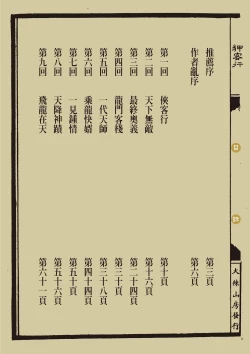 大辣山房發行
推薦序 第三頁
作者亂序 第六頁
第一回 俠客行 第十頁
第二回 天下無敵 第十六頁
第三回 最終奧義 第二十四頁
第四回 龍門客棧 第三十頁
第五回 一代天師 第三十八頁
第六回 乘龍快婿 第四十四頁
第七回 一見鍾情 第五十頁
第八回 天降神蹟 第五十六頁
第九回 飛龍在天 第六十一頁